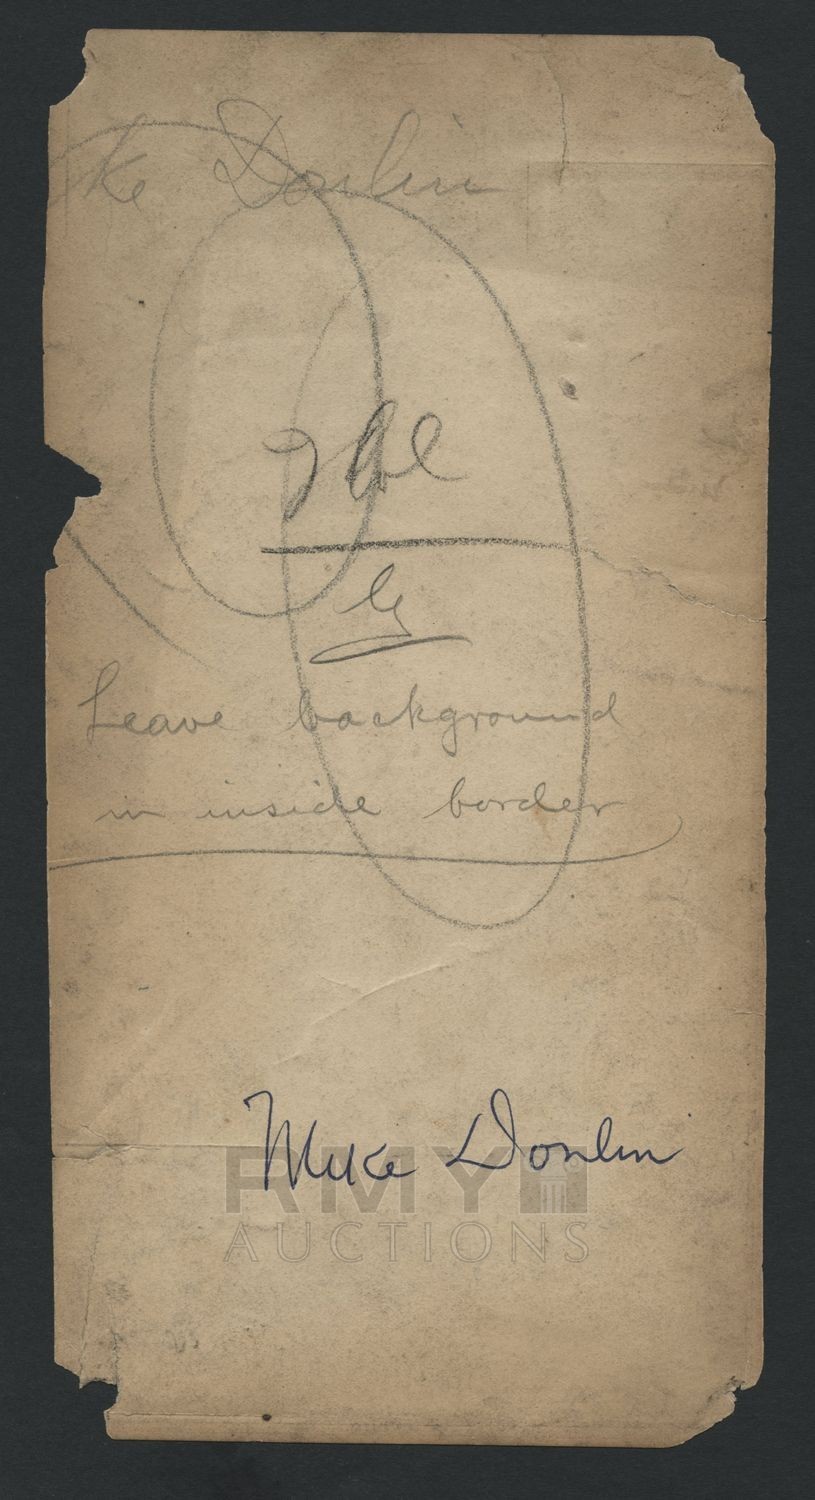 ke Donlin
Leave background
in inside border
Mike Donlin
RMY
AUCTIONS